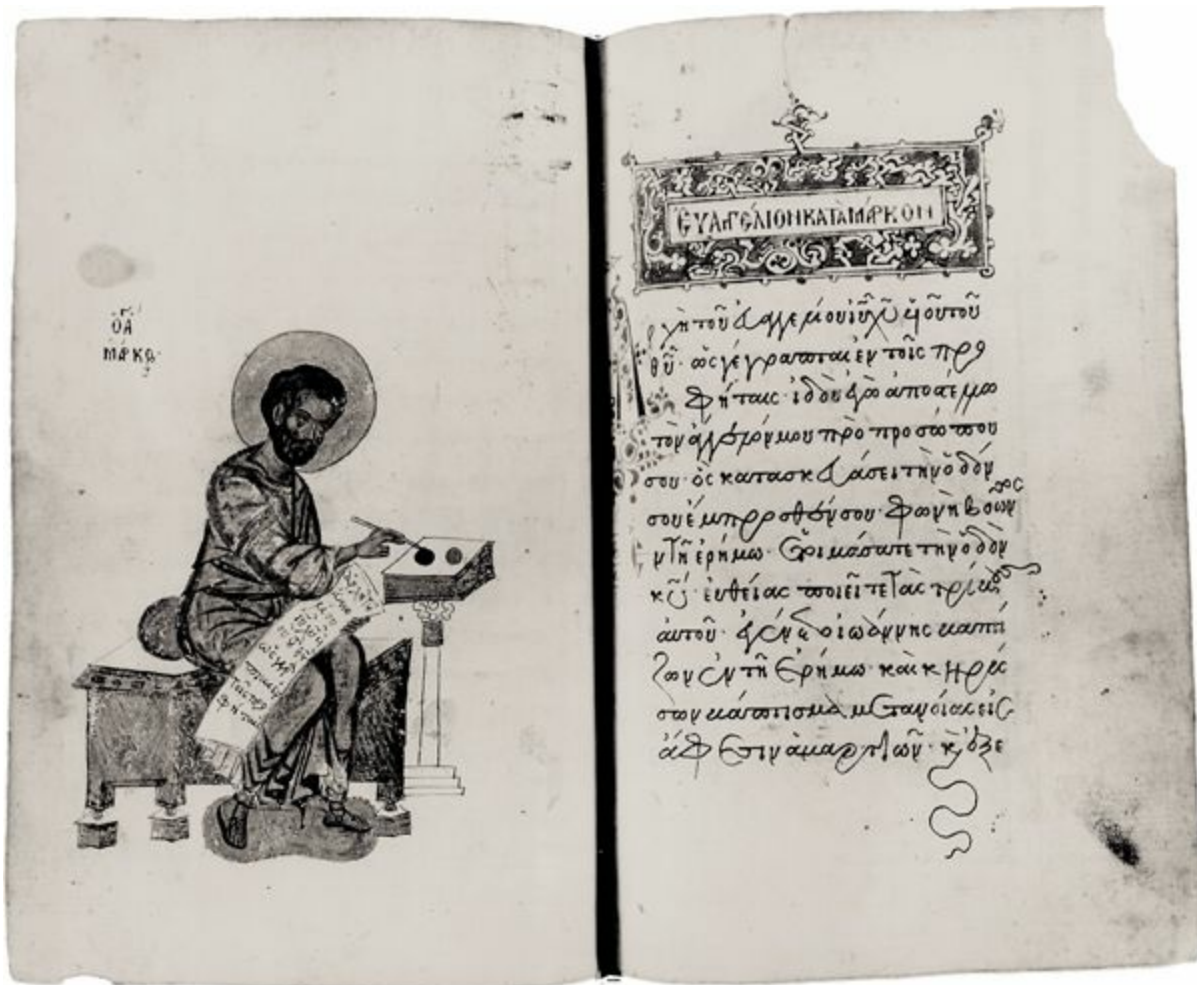 ὉΑ
ΜΆΡΚΟΣ
ΕΥΑΓΓΕΛΙΟΝ ΚΑΤΑ ΜΆΡΚΟΝ
ἀρχὴ τοῦ εὐαγγελίου ιυ χυ υἱοῦ τοῦ
θυ· ὡς γέγραπται ἐν τοῖς προ
φήταις· ἰδοὺ ἐγὼ ἀποστέλλω
τὸν ἄγγελόν μου πρὸ προσώπου
σου· ὃς κατασκευάσει τὴν ὁδόν
σου ἔμπροσθέν σου· φωνὴ βοῶντος
ἐν τῇ ἐρήμω· ἑτοιμάσατε τὴν ὁδὸν
κυ· εὐθείας ποιεῖτε τὰς τρίβους
αὐτοῦ· ἐγένετο ἰωάννης βαπτί
ζων ἐν τῇ ἐρήμω· καὶ κηρύς
σων βάπτισμα μετανοίας εἰς
ἄφεσιν ἁμαρτιῶν· κ ἐξε